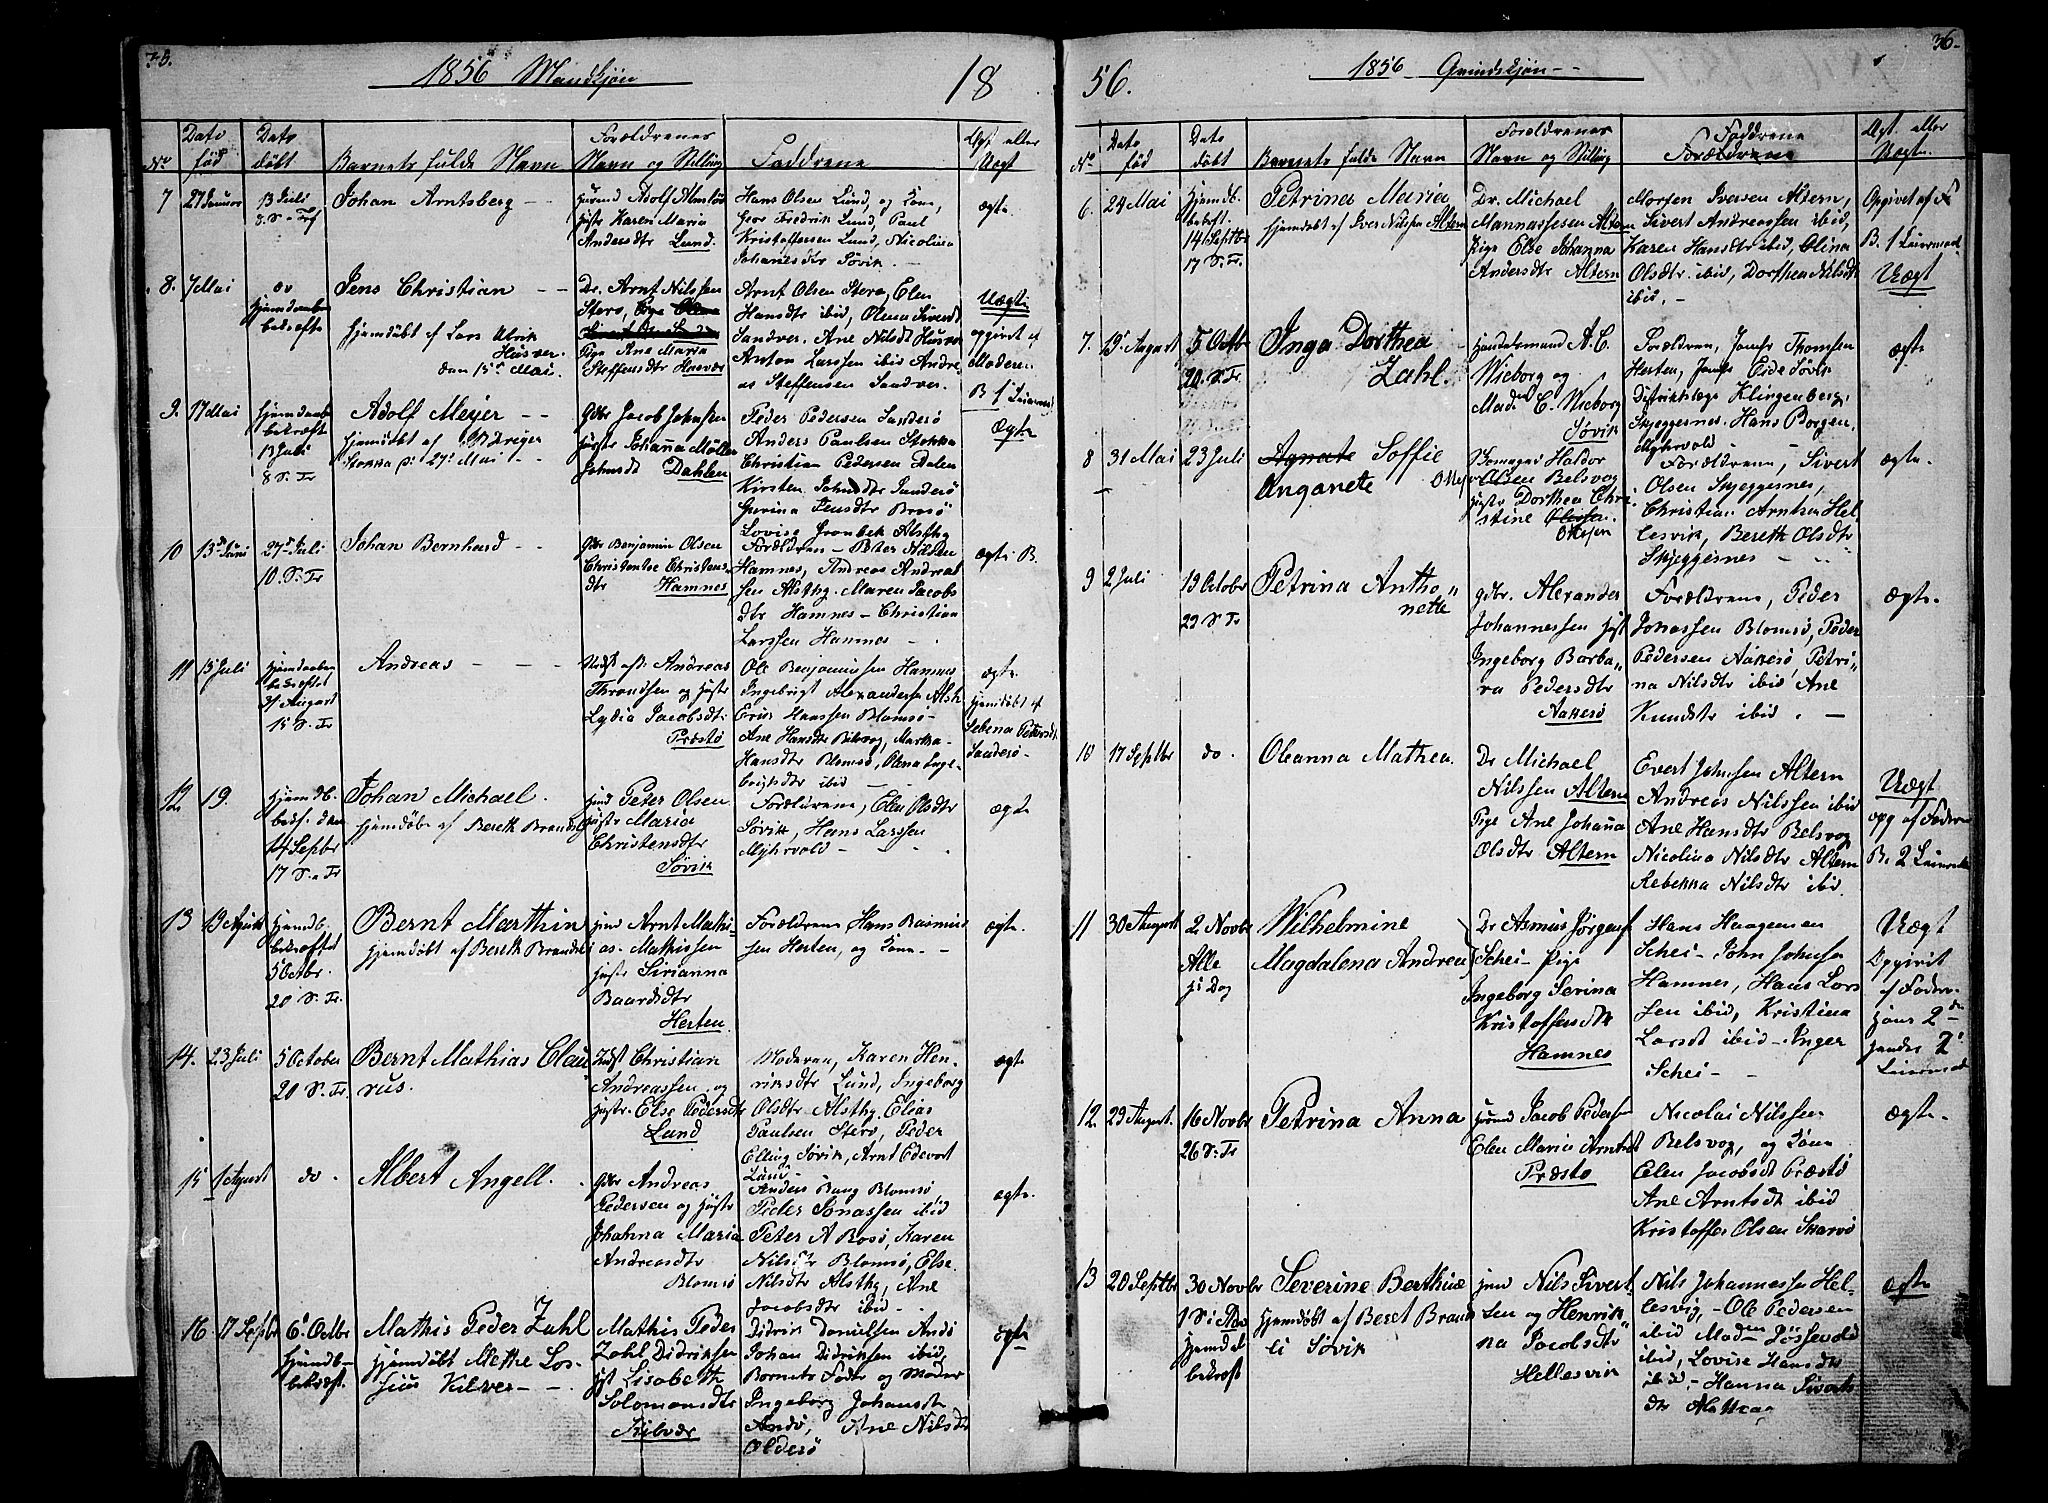 35.
1856 Mandkjøn
18
No
Dato
fød
Dato
døbt
Barnets fulde Navn
Forældrenes
Navn og Stilling
Faddrene
Ægt eller
Uægt
7
27 Januar
13 Juli
8. S. Tr
Johan Arntsberg
Adolf
Karen Maria
Andersdtr Lund.
Hans Olsen Lund, og Kone,
Fredrik Lund, Paul
Kristoffersen Lund, Nicolina
Johanesdtr Søvik.
ægte.
8.
7 Mai
Jens Christian
hjemdøbt af Lars Ulrik
Husver.
den 15de Mai.
Dr. Arnt Nilssen
Stero,
Pige Ane Maria
Steffensdtr Husvær
Arnt Olsen Stero, Elen
Hansdtr ibid, Olena Siversdt
Sandver. Ane Nilsdt Husvær
Anton Larssen ibid Andre
as Steffensen Sandver.
Uægte
opgivet af
Moderen
B 1 Leiermaal
9.
17 Mai
hjemdaaben
bekræfte
13 Juli
8 S. Tr
Adolf Meyer
hjemdøbt af
Stokka d. 27de Mai
Gdbr Jacob Johnsen
Hustr Johana Møller
Johnsdt Dahlen
Peder Pedersen Sandersø
Anders Paulsen Stokka
Christian Pedersen Dalen
Kirsten Johnsdtr Sandersø
Gurina Jensdtr Brasø
Lovise Grønbek Alsthg
Ægte
10
13de Juni
27de Juli
10. S. Tr
Johan Bernhard
Gdbr Benjamin Olsen
Hamnes
Forældrene - Peter
Hamnes, Andreas Andreas
sen Alsthg. Maren Jacobs
dtr Hamnes - Christian
Larssen Hamnes
ægte B.
11
15 Juli
hjemdaaben
bekræftet
31 August
15 S. Tr
Andreas
Andreas
Throndsen og Hustr
Lydia Jacobsdt.
Præstø
Ole Benjaminsen Hamnes
Ingebrigt Alexandersen Alsth
Eric Hanssen Blomsø
Ane Hansdtr Belsvog, Martha
Hansdtr Blomsø, Olena Inge-
brigtsdtr ibid
ægte.
hjemdøbt af
Sebena Petersdt
Sandersø
12
19.
hjemdb.
bekr. den
14 Septbr
17 S. Tr
Johan Michael.
hjemdøbt af Bereth Brandsli
Peter Olsen
Hustr Maria
Christensdtr
Søvik
Forældrene, Elen Olsdtr
Søvik, Hans Larssen
Myhrvold
ægte
13
19 August
hjemdb.
bekræftet
5 Octbr.
20 S. Tr.
Bernt Marthin
hjemdøbt af Bereth Brandsli
Arnt Mathi-
as. Mathissen
Hustr Sirianna
Baardsdtr
Herten
Forældrene Hans Rasmus
sen Herten, og Kone
ægte.
14.
23 Juli
5 October
20 S. Tr.
Bernt Mathias Clau
rus.
Indst Christian
Andreassen og
Hustr. Else Pedersdtr
Lund
Moderen, Karen Hen-
riksdtr Lund, Ingeborg
Olsdtr Alsthg. Elias
Paulsen Stero, Peder
Elling Søvik, Arnt Edevart
Lund
ægte
15
1 August
do
Albert Angell.
Gdbr Andreas
Pedersen og Hustr
Johahna Maria
Andreasdtr
Blomsø
Anders Bang Blomsø
Peder Jonassen ibid
Peter A Rosø, Karen
Nilsdtr Blomsø, Else
Nilsdtr Alsthg, Ane
Jacobsdtr ibid
ægte.
16
17 Septbr
6 Octbr
hjemdb-
bekræft.
Mathis Peder Zahl
hjemdøbt Methe Los-
sius Kilver
Mathis Peder
Zahl Didriksen
Hst Lisabeth
Solomonsdtr
Kilvær
Didrik Danielsen Andø
Johan Didriksen ibid,
Barnets Fader og Moder
Ingeborg Johansdt
Andø, Ane Nilsdt
Olderø
ægte
56.
1856 Qvindekjøn
36.
No
Dato
fød
Dato
døbt
Barnets fulde Navn
Forældrenes
Navn og Stilling
Faddrene
Forældrene
Ægt. eller
Uægte.
6.
24 Mai
Hjemdb.
bekræft.
14 Septbr
17 S. Tr.
Petrina Maria
hjemdøbt af Iver Nilsen Altern
Dr. Michael
Mannassesen Altern
Pige Else Johanna
Andersdtr Altern
Morten Iversen Altern,
Sivert Andreassen ibid,
Karen Hansdtr ibid, Olina
Olsdtr ibid, Dorthea Nilsdt
ibid.
Opgivet af F
B. 1 Leiermaal
Uægt
7.
19 August
5 Octb
20. S. Tr.
Inga Dorthea
Zahl.
Handelsmand A. C.
Wieborg og
Mad C. Wieborg
Søvik
Forældren, Jomfr Thomsen
Herten, Jomfr Eide Søvik
Distriktslæge Klingenberg,
Skjeggesnes. Hans Borgen.
Myhrvold
ægte
8
31 Mai
23 Juli
Agnate Soffie
Anganete
Haldor
Olsen Belsvog
Hustr Dorthea Chri
stine
Forældrene, Sivert
Olsen Skjeggesnes,
Christian Arntsen Hel
lesvik, Bereth Olsdtr
Skjeggesnes
ægte.
9
2 Juli
19 October
22 S. Tr
Petrina Antho
nette
Gdbr. Alexander
Johannessen Hust
Ingeborg Barba
ra Pedersdtr
Aakersø
Forældrene, Peder
Jonassen Blomsø, Peder
Pedersen Aakersø Petri
na Nilsdtr ibid, Ane
Knudsdtr ibid.
ægte.
10
17 Septbr
do.
Oleanna Mathea.
Dr Michael
Nilssen Altern
Pige Ane Johana
Olsdtr Altern
Evert Johnsen Altern
Andreas Nilssen ibid
Ane Hansdtr Belsvog
Nicolina Nilsdtr Altern
Rebekka Nilsdtr ibid.
Uægt
opg af Faderen
B. 2 Leiermaal
11
30 August
2 Novbr
Alle
H. Dag
Wilhelmine
Magdalena Andrea
Dr Asmus Jørgens
Schei - Pige
Ingeborg Serina
Kristoffersdtr
Hamnes
Hans Haagensen
Schei - John Johnsen
Hamnes, Hans Lars
sen ibid, Kristina
Larsdt ibid - Inger
Schei -
Uægt
Opgivet
af Faderen
hans 2den
hendes 2det
Leiermaal
12.
29 August.
16 Novbr
26 S. Tr
Petrina Anna
Jacob Pedersen
Elen Maria Arntsdt
Præstø
Nicolai Nilssen
Belsvog, og Kone
Elen Jacobsdt Præstø
Ane Arntsdt ibid
Kristoffer Olsen Skarvø
ægte.
13
20 Septbr
30 Novbr
1 S. i Adv
hjemdaab
bekræft
Severine Berthine
hjemdøbt af Beret Brand
li Søvik
Nils Sivert
sen og Henrik
na Jacobsdtr
Hellesvik
Nils Johannessen Hel-
lesvig, - Ole Pedersen
ibid Maden
ibid, Lovise Hansdtr
ibid, - Hanna Siverts
dtr
ægte